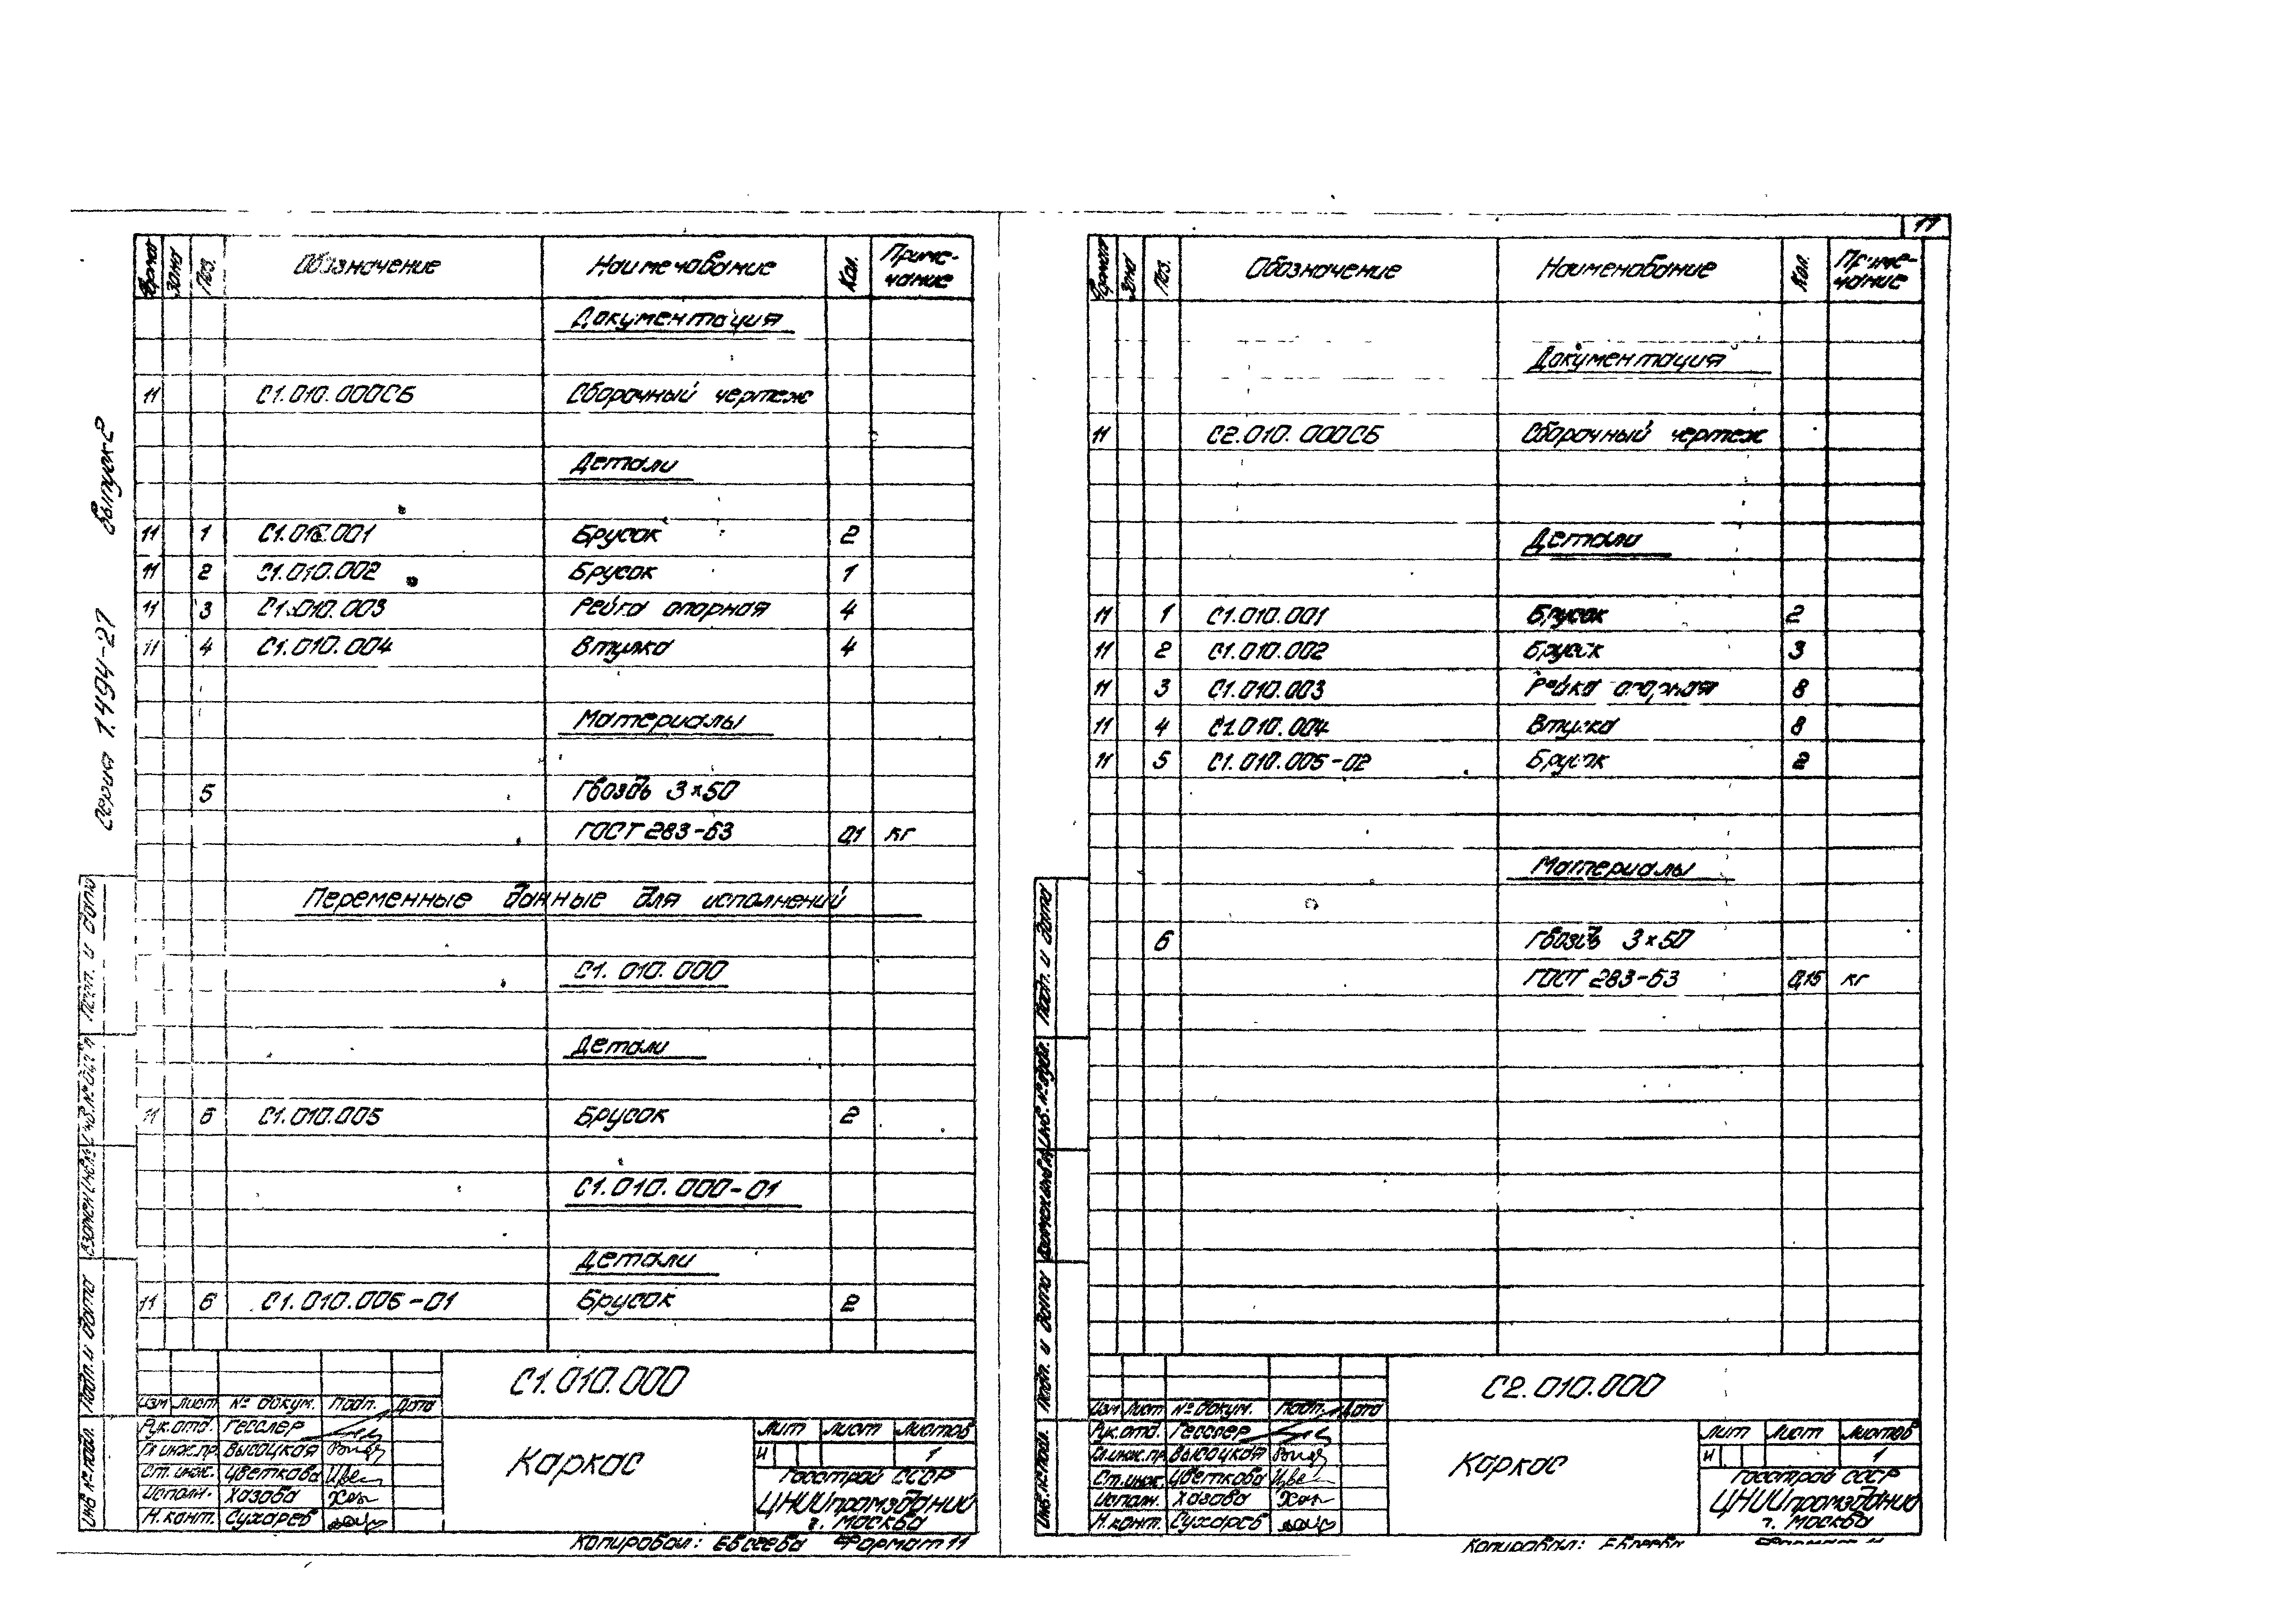 11
Серия 1.494-27 выпуск 2
Формат Зона Поз. Обозначение Наименование Кол. Приме-
чание
Документация
11 С1.010.000СБ Сборочный чертеж
Детали
11 1 С1.010.001 Брусок 2
11 2 С1.010.002 Брусок 1
11 3 С1.010.003 Рейка опорная 4
11 4 С1.010.004 Втулка 4
Материалы
5 Гвоздь 3×50
ГОСТ 283-63 0,1 кг
Переменные данные для исполнений
С1.010.000
Детали
11 6 С1.010.005 Брусок 2
С1.010.000-01
Детали
11 6 С1.010.005-01 Брусок 2
С1.010.000
Изм Лист № докум. Подп. Дата
Рук.отд. Гесслер
Гл.инж.пр. Высоцкая
Ст.инж. Цветкова
Исполн. Хазова
Н.конт. Сухарев
Каркас
Лит Лист Листов
И 1
Госстрой СССР
ЦНИИпромзданий
г. Москва
Копировал: Евсеева Формат 11
Инв.№ подл. Подп. и дата Взамен инв.№ Инв.№ дубл. Подп. и дата
Формат Зона Поз. Обозначение Наименование Кол. Приме-
чание
Документация
11 С2.010.000СБ Сборочный чертеж
Детали
11 1 С1.010.001 Брусок 2
11 2 С1.010.002 Брусок 3
11 3 С1.010.003 Рейка опорная 8
11 4 С1.010.004 Втулка 8
11 5 С1.010.005-02 Брусок 2
Материалы
6 Гвоздь 3×50
ГОСТ 283-63 0,15 кг
С2.010.000
Изм Лист № докум. Подп. Дата
Рук.отд. Гесслер
Гл.инж.пр. Высоцкая
Ст.инж. Цветкова
Исполн. Хазова
Н.конт. Сухарев
Каркас
Лит Лист Листов
И 1
Госстрой СССР
ЦНИИпромзданий
г. Москва
Копировал: Евсеева Формат 11
Инв.№ подл. Подп. и дата Взамен инв.№ Инв.№ дубл. Подп. и дата